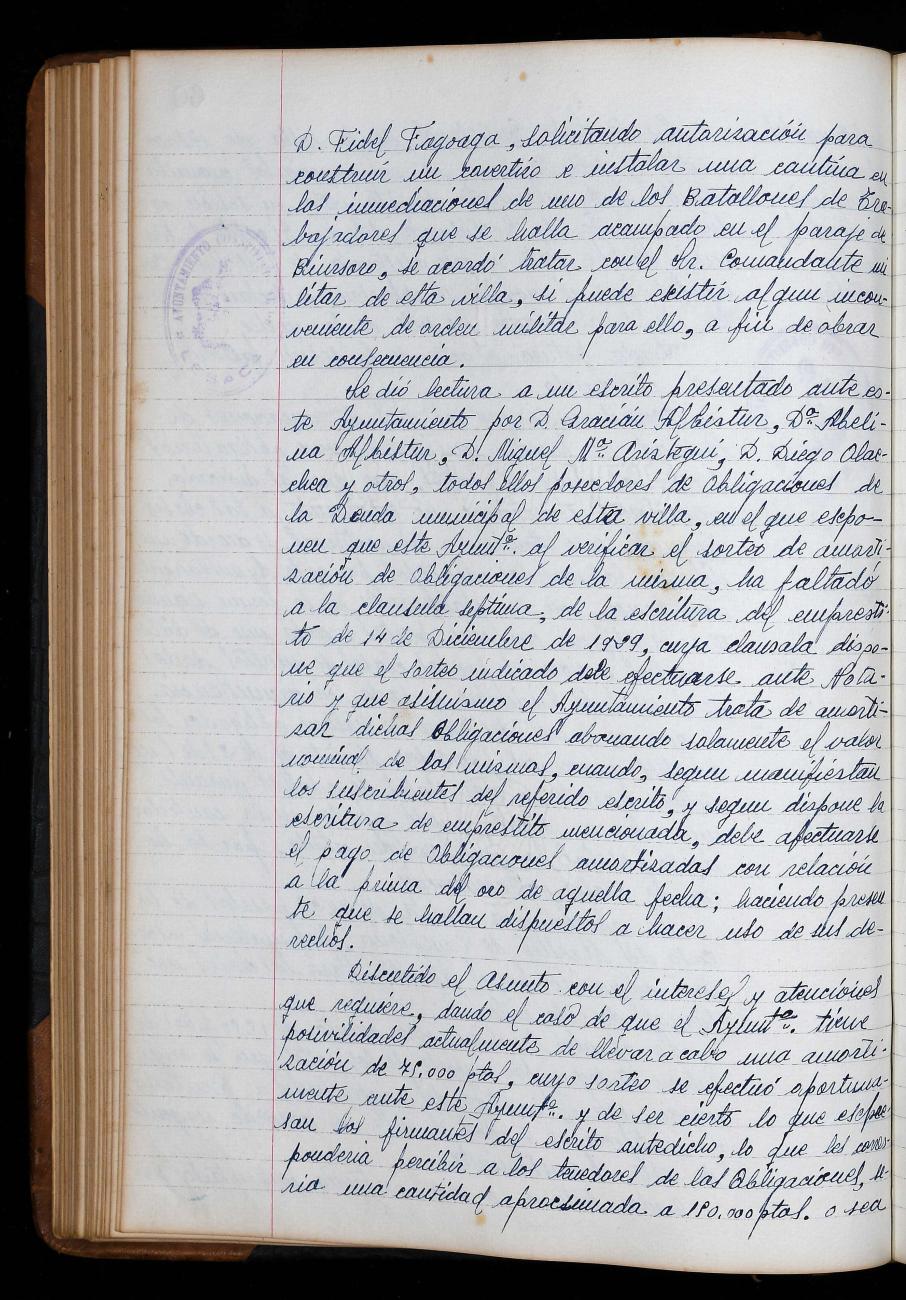 D. Fidel Fagoaga, solicitando autorización para
construir un covertizo e instalar una cantina en
las inmediaciones de uno de los Batallones de Tra-
bajadores que se halla acampado en el paraje de
se acordó tratar con el Sr. Comandante mi
litar de esta villa, si puede existir algun incon-
veniente de orden militar para ello, a fin de obrar
en consecuencia.
Se dió lectura a un escrito presentado ante es-
te Ayuntamiento por D. Gracián Albistur, Dª. Abeli-
na Albistur, D. Miguel Mª. Aristegui, D. Diego Olae-
chea y otros, todos ellos poseedores de Obligaciones de
la Deuda municipal de esta villa, en el que espo-
nen que este Ayuntº. al verificar el sorteo de amorti-
zación de Obligaciones de la misma, ha faltado
a la clausula septima, de la escritura del emprésti-
to de 14 de Diciembre de 1899, cuya clausala dispo-
ne que el sorteo indicado debe efectuarse ante Nota-
rio y que asimismo el Ayuntamiento trata de amorti-
zar dichas Obligaciones abonando solamente el valor
nominal de las mismas, cuando, segun manifiestan
los suscribientes del referido escrito, y segun dispone la
escritura de empréstito mencionada, debe afectuarse
el pago de Obligaciones amortizadas con relación
a la prima del oro de aquella fecha; haciendo presen
te que se hallan dispuestos a hacer uso de sus de-
rechos.
Discutido el Asunto con el interes y atenciones
que requiere, dando el caso de que el Ayuntº. tiene
posivilidades actualmente de llevar a cabo una amorti-
zación de 75.000 ptas, cuyo sorteo se efectuó oportuna-
mente ante este Ayuntº. y de ser cierto lo que espre-
san los firmantes del escrito antedicho, lo que les corres-
ponderia percibir a los tenedores de las Obligaciones, se-
ria una cantidad aprocsimada a 180.000 ptas. o sea
AYUNTAMIENTO